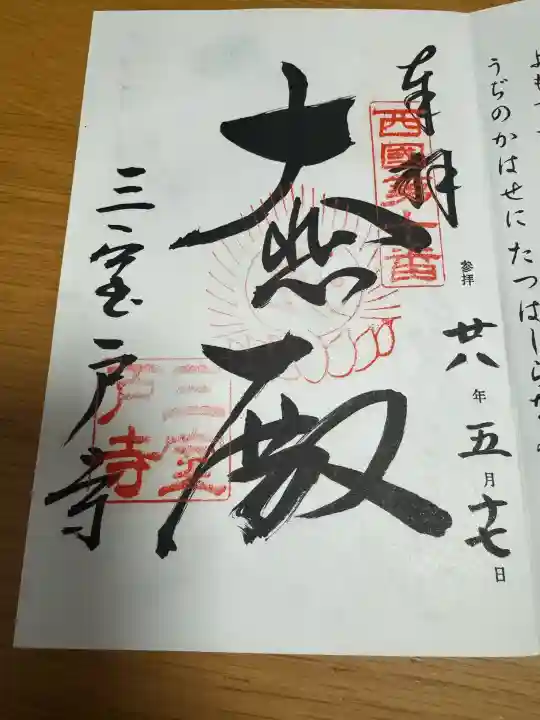 うぢのかはせにたつはしらなみ
奉拝
西國第十番
参拝
廿八年五月十七日
大悲殿
三室戸寺
三室戸寺